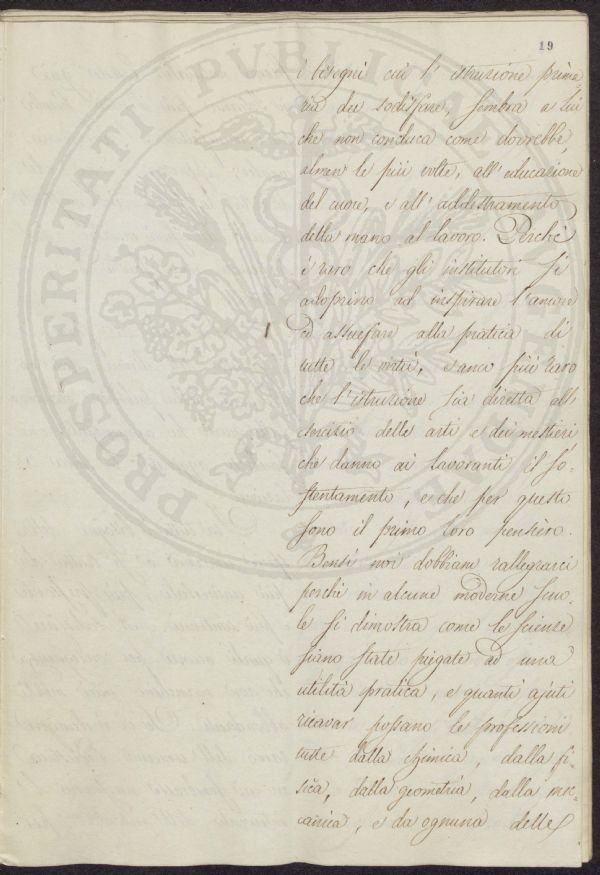 19
i bisogni cui l' istruzione prima
ria dee sodisfare, sembra a Lui
che non conduca come dovrebbe,
almen le più volte, all' educazione
del cuore, e all' addestramento
della mano al lavoro. Perchè
è raro che gli institutori si
adoprino ad inspirare l' amore
ed assuefare alla pratica di
tutte le virtù, e anca più raro
che l' istruzione sia diretta all'
esercizio delle arti e dei mestieri
che danno ai lavoranti il so-
stentamento, e che per questo
sono il primo loro pensiero.
Bensì noi dobbiam rallegrarci
perchè in alcune moderne scuo-
le si dimostra come le scienze
siano state piegate ad una
utilità pratica, e quanti ajuti
ricavar possano le professioni
tutte dalla chimica, dalla fi-
sica, dalla geometria, dalla mec-
canica, e da ognuna delle
PROSPERITATI PUBLICAE AUGENDAE